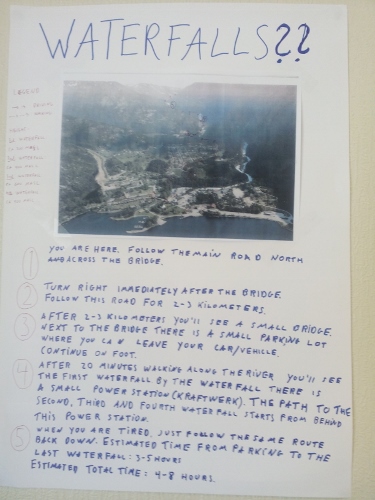 WATERFALLS??
LEGEND
YOU ARE HERE. FOLLOW THE MAIN ROAD NORTH
AND ACROSS THE BRIDGE.
1
TURN RIGHT IMMEDIATELY AFTER THE BRIDGE.
2
FOLLOW THIS ROAD FOR 2-3 KILOMETERS.
AFTER 2-3 KILOMETERS YOU'LL SEE A SMALL BRIDGE.
3
NEXT TO THE BRIDGE THERE IS A SMALL PARKING LOT
WHERE YOU CAN LEAVE YOUR CAR/VEHICLE.
CONTINUE ON FOOT.
4
AFTER 20 MINUTES WALKING ALONG THE RIVER, YOU'LL SEE
THE FIRST WATERFALL. BY THE WATERFALL THERE IS
A SMALL POWER STATION (KRAFTWERK). THE PATH TO THE
SECOND, THIRD AND FOURTH WATERFALL STARTS FROM BEHIND
THIS POWER STATION.
5
WHEN YOU ARE TIRED, JUST FOLLOW THE SAME ROUTE
BACK DOWN. ESTIMATED TIME FROM PARKING TO THE
LAST WATERFALL: 3-5 HOURS
ESTIMATED TOTAL TIME: 4-8 HOURS.